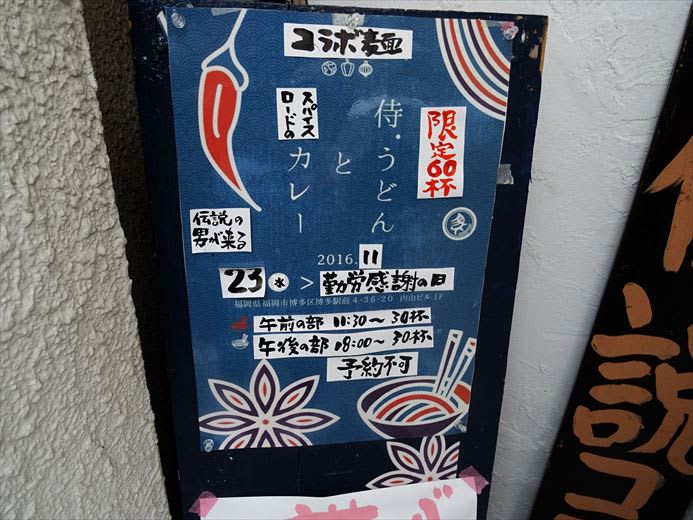 コラボ麺
侍.うどん
と
スパイス
ロードの
カレー
限定60杯
伝説の
男が来る
2016.11
23 水 > 勤労感謝の日
福岡県福岡市博多区博多駅前 4-36-20 内山ビル 1F
午前の部 11:30～30杯
午後の部 18:00～30杯
予約不可
説
コ